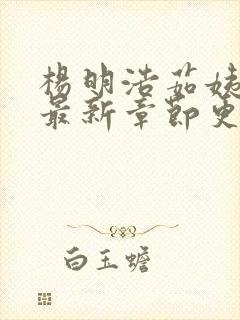 楊明浩茹姨
最新章節更
白玉蟾